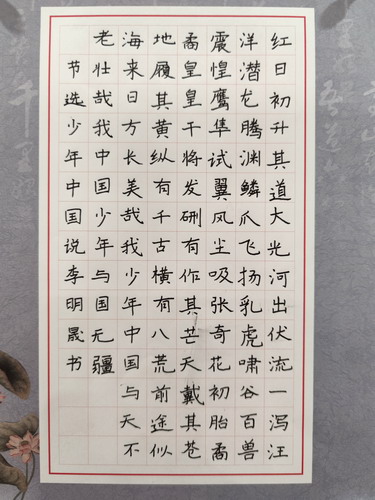 红日初升其道大光河出伏流一泻汪
洋潜龙腾渊鳞爪飞扬乳虎啸谷百兽
震惶鹰隼试翼风尘吸张奇花初胎矞
矞皇皇干将发硎有作其芒天戴其苍
地履其黄纵有千古横有八荒前途似
海来日方长美哉我少年中国与天不
老壮哉我中国少年与国无疆
节选少年中国说李明晟书